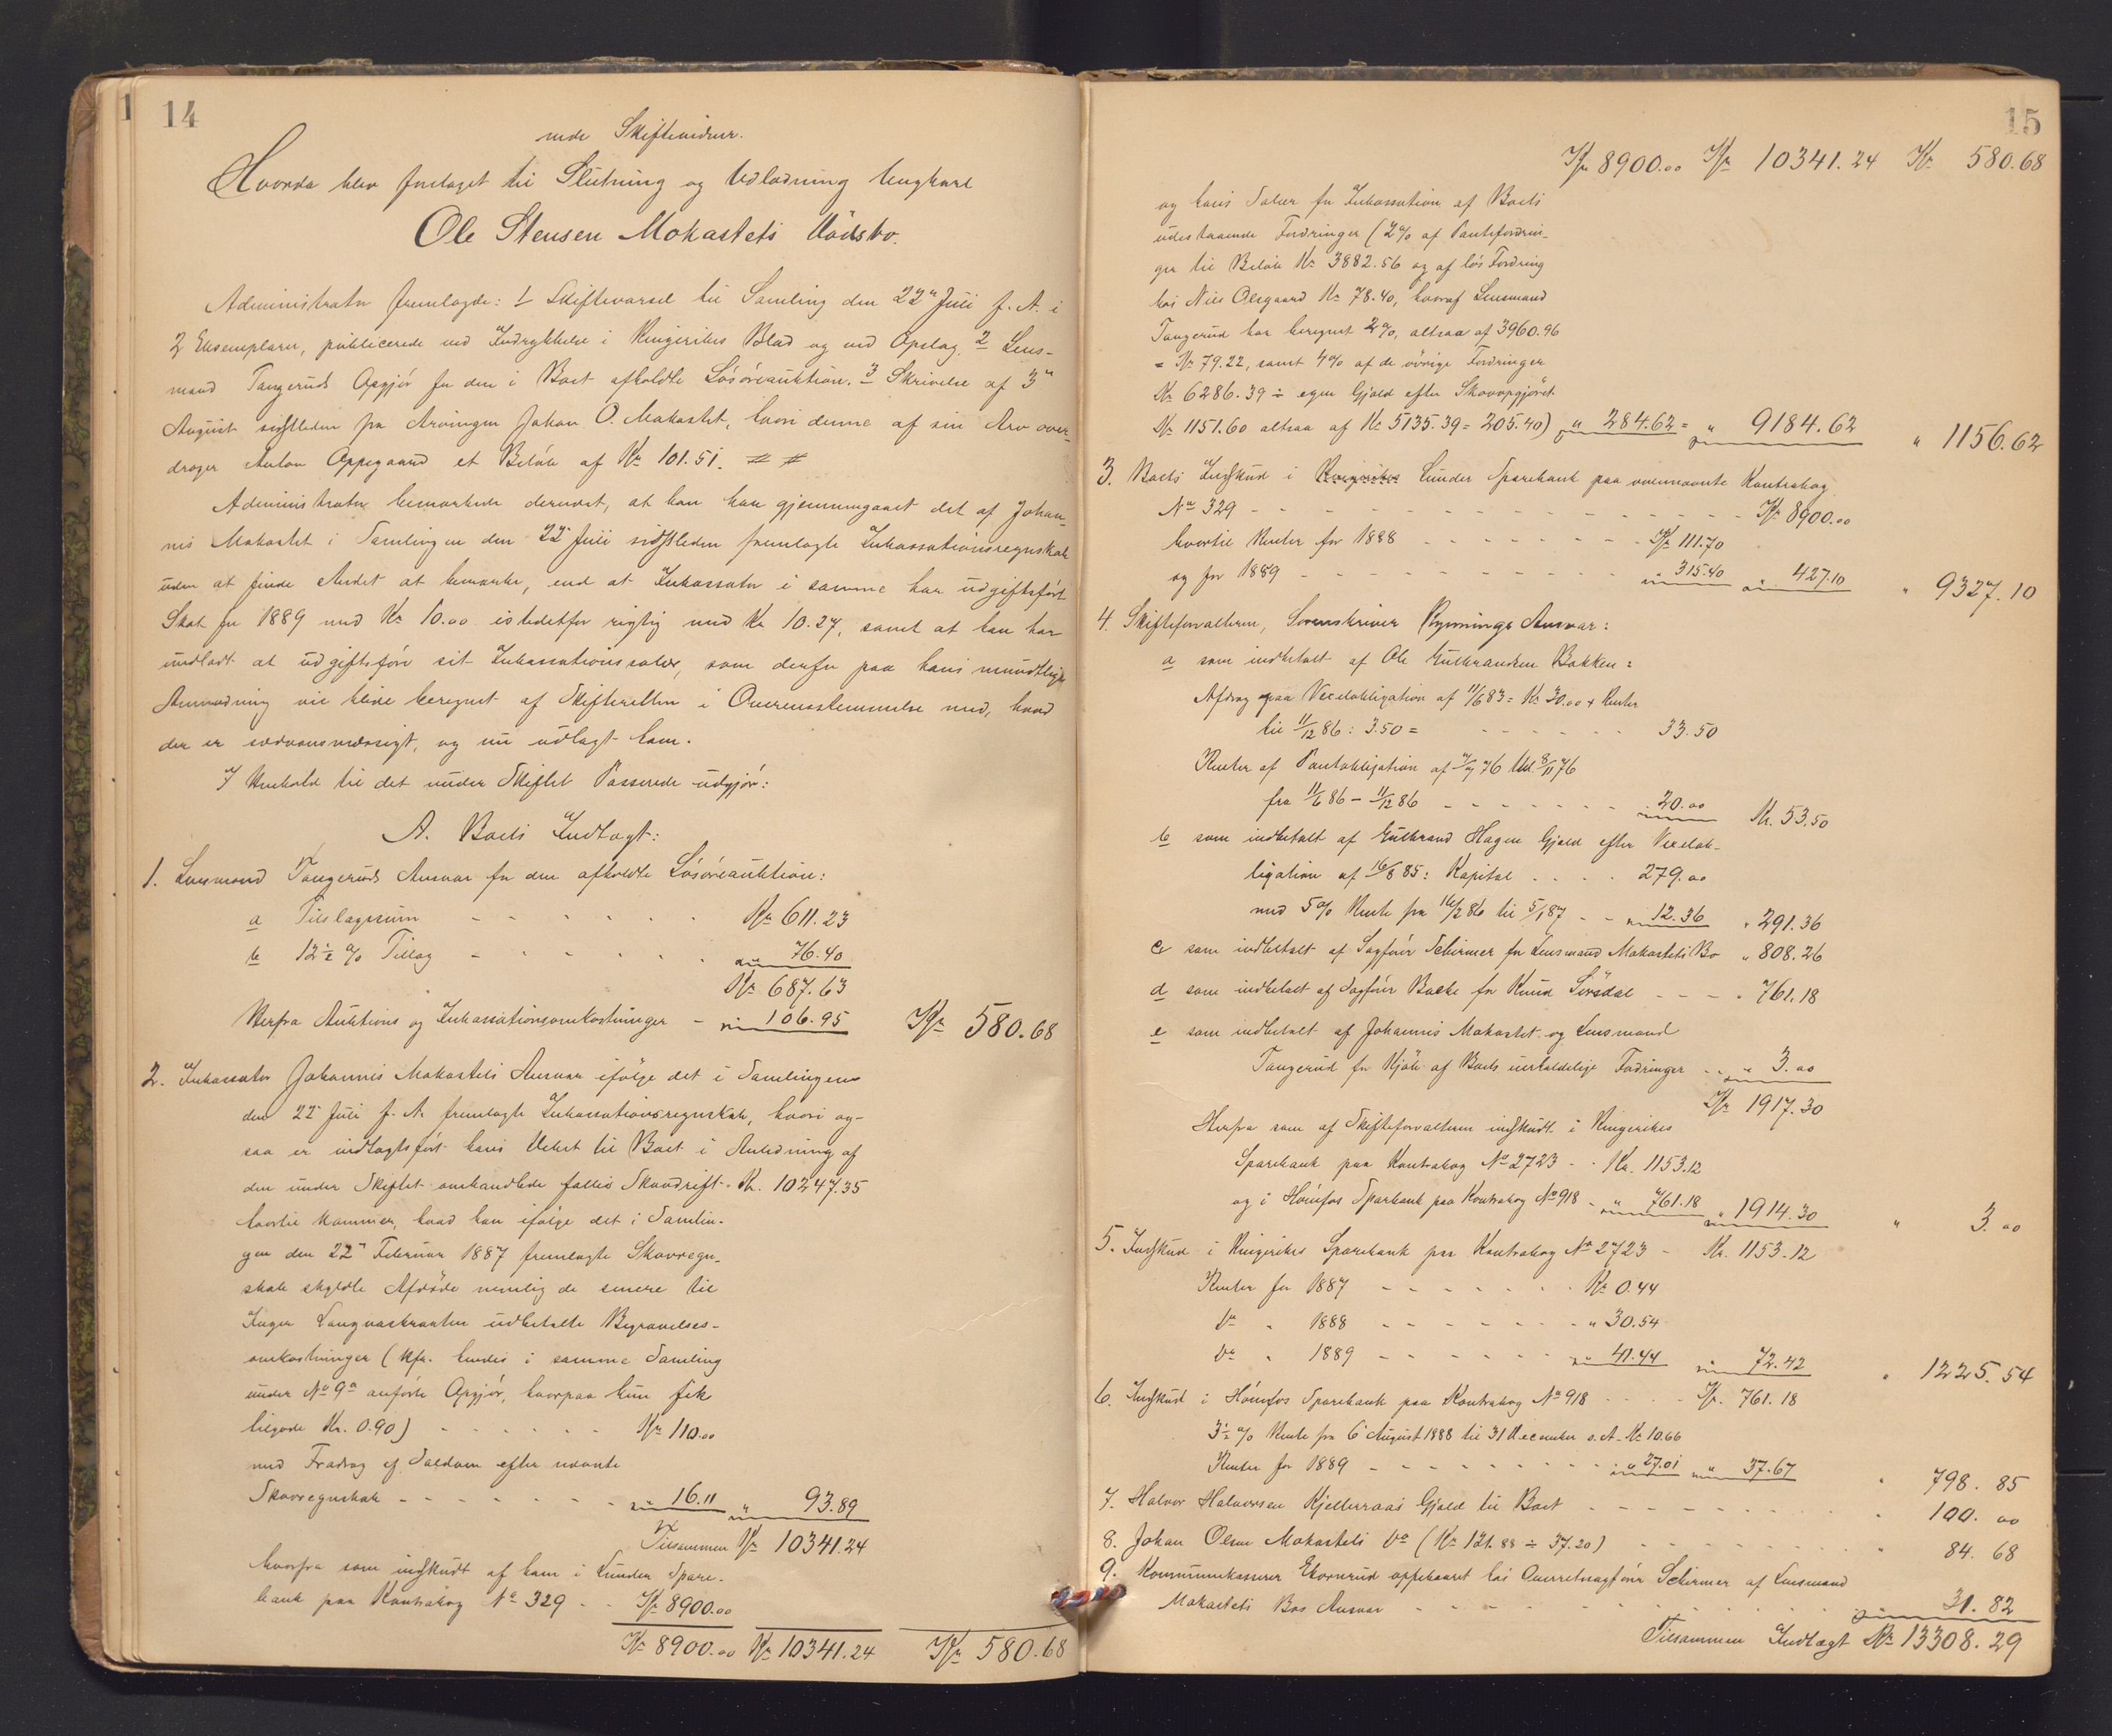 14
rede Skiftevidner.
Hvorda blev foretaget til Slutning og Udlodning Ungkarl
Ole Stensen Mokastets Dødsbo.
Administrator fremlagde: 1 Skiftevarsel til Samling den 22de Juli f. A. i
2 Eksemplarer, publicerede ved Indrykkelse i Ringerikes Blad og ved Opslag, 2 Lens-
mand Tangeruds Opgjør for den i Boet afholdte Løsøreauktion. 3 Skrivelse af 3die
August sidstleden fra Arvingen Johan O. Mokastet, hvori denne af sin Arv over-
drager Anton Oppegaard et Beløb af Kr 101.51.
Administrator bemærkede dernæst, at han har gjennemgaaet det af Johan-
nes Mokastet i Samlingen den 22de Juli sidstleden fremlagte Inkassationsregnskab
uden at finde Andet at bemærke, end at Inkassator i samme har udgiftsført
Skat for 1889 med Kr 10.00 istedetfor rigtig med Kr 10.27, samt at han har
undladt at udgiftsføre sit Inkassationssalær, som derfor paa hans mundtlige
Anmodning vil blive beregnet af Skifteretten i Overensstemmelse med, hvad
der er sædvansmæssigt, og nu udlagt ham.
I Henhold til det under Skiftet Passerede udgjør:
A. Boets Indtægt:
1. Lensmand Tangeruds Ansvar for den afholdte Løsøreauktion:
a Tilslagssum - - - - - - Kr 611.23
b 12½ % Tillæg - - - - - - 76.40
Kr 687.63
Herfra Auktions og Inkassationsomkostninger - 106.95 Kr 580.68
2. Inkassator Johannes Mokastets Ansvar ifølge det i Samlingen
den 22de Juli f. A. fremlagte Inkassationsregnskab, hvori og-
saa er indtægtsført hans Debet til Boet i Anledning af
den under Skiftet omhandlede fælles Skovdrift - Kr. 10247.35
hvortil kommer, hvad han ifølge det i Samlin-
gen den 22de Februar 1887 fremlagte Skovregn-
skab skyldte Afdøde nemlig de senere til
Inger udbetalte Begravelses-
omkostninger (kfr. hendes i samme Samling
under No 9a anførte Opgjør, hvorpaa hun fik
tilgode Kr. 0.90) - - - - - Kr 110.00
med Fradrag af Saldoen efter nævnte
Skovregnskab - - - - - - - 16.11 " 93.89
Tilsammen Kr 10341.24
hvorfra som indskudt af ham i Lunder Spare-
bank paa Kontrabog No 329 - - Kr 8900.00
Kr 8900.00 Kr 10341.24 Kr 580.68
15
Kr 8900.00 Kr 10341.24 Kr 580.68
og hans Salær for Inkassation af Boets
udestaaende Fordringer (2% af Pantefordrin-
ger til Beløb Kr 3882.56 og af løs Fordring
hos Nils Olsgaard Kr 78.40, hvoraf Lensmand
Tangerud har beregnet 2%, altsaa af 3960.96
= Kr 79.22, samt 4% af de øvrige Fordringer
Kr 6286.39 ÷ egen Gjæld efter Skovopgjøret
Kr 1151.60 altsaa af Kr 5135.39 = 205.40) " 284.62 = " 9184.62 " 1156.62
3. Boets Indskud i Lunder Sparebank paa ovennævnte Kontrabog
No 329 - - - - - - - - - - Kr 8900.00
hvortil Renter for 1888 - - - - - - Kr 111.70
og for 1889 - - - - - - - - 315.40 " 427.10 " 9327.10
4. Skifteforvalteren, Sorenskriver Rynnings Ansvar:
a som indbetalt af Ole Gulbrandsen Bakken:
Afdrag paa Vexelobligation af 11/6 83 = Kr 30.00 + Renter
til 11/12 86 : 3.50 = - - - - - - 33.50
Renter af Panteobligation af 76 tbl. 8/11 76
fra 11/6 86 - 11/12 86 - - - - - - 20.00 Kr. 53.50
b som indbetalt af Gulbrand Hagen Gjæld efter Vexelob-
ligation af 16/8 85: Kapital . . . . 279.00
med 5% Rente fra 16/2 86 til 5/1 87 - - " 12.36 " 291.36
c som indbetalt af Sagfører Schirmer for Lensmand Mokastets Bo " 808.26
d som indbetalt af Sagfører Bache for Knud Sørsdal - - - - " 761.18
e som indbetalt af Johannes Mokastet og Lensmand
Tangerud for Kjøb af Boets uerholdelige Fordringer - - " 3.00
Kr 1917.30
Herfra som af Skifteforvalteren indskudt i Ringerikes
Sparebank paa Kontrabog No 2723 - - Kr. 1153.12
og i Hønefos Sparebank paa Kontrabog No 918 - " 761.18 " 1914.30 " 3.00
5. Indskud i Ringerikes Sparebank paa Kontrabog No 2723 - Kr. 1153.12
Renter for 1887 - - - - - - - Kr 0.44
Do " 1888 - - - - - - - " 30.54
Do " 1889 - - - - - - - " 41.44 " 72.42 " 1225.54
6. Indskud i Hønefos Sparebank paa Kontrabog No 918 - - - Kr. 761.18
3½ % Rente fra 6 August 1888 til 31 December s. A. Kr 10.66
Renter for 1889 - - - - - - - - " 27.01 " 37.67 " 798.85
7. Halvor Halvorsen Kjelleraas Gjæld til Boet - - - - - - " 100.00
8. Johan Olsen Mokastets Do (Kr 121.88 ÷ 37.20) - - - - - - " 84.68
9. Kommunekasserer Ekornrud oppebaaret hos Overretssagfører Schirmer af Lensmand
Mokastets Bos Ansvar - - - - - - - - - 31.82
Tilsammen Indtægt Kr 13308.29